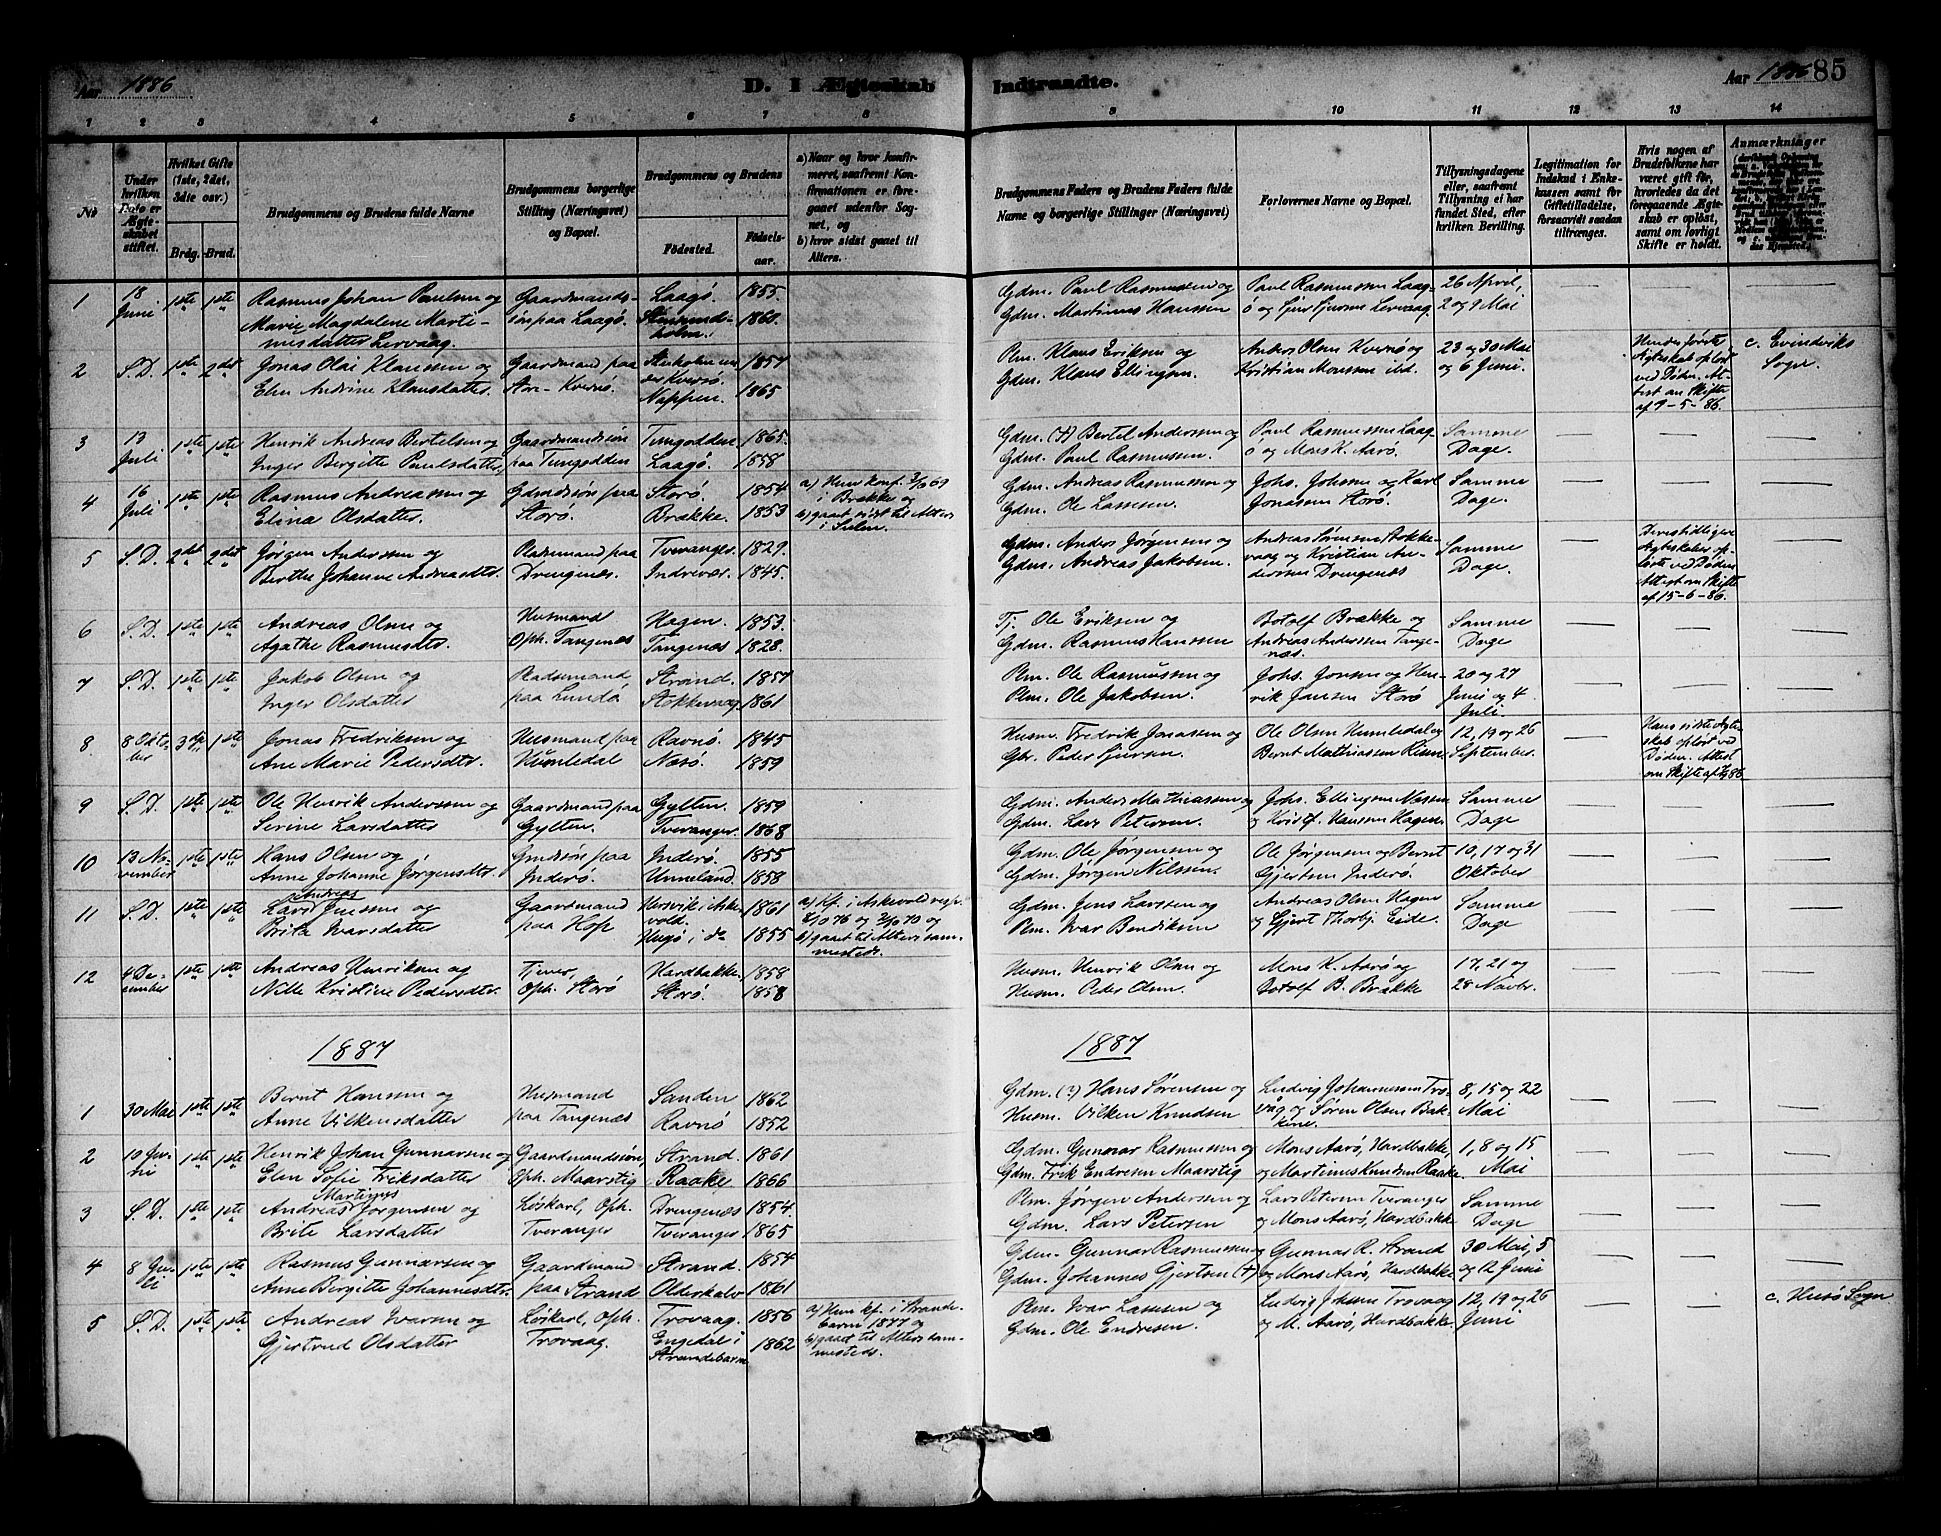 Aar 1886
D. I Ægteskab Indtraadte.
Aar 1886
85
1 2 3 4 5 6 7 8 9 10 11 12 13 14
No
Under hvilken Dato er Ægteskabet stiftet.
Hvilket Gifte (1ste, 2det, 3die osv.)
Brdg. Brud.
Brudgommens og Brudens fulde Navne
Brudgommens borgerlige Stilling (Næringsvei) og Bopæl.
Brudgommens og Brudens
Fødested.
Fødselsaar.
a) Naar og hvor konfirmeret, saafremt Konfirmationen er foregaaet udenfor Sognet, og
b) hvor sidst gaaet til Alters.
Brudgommens Faders og Brudens Faders fulde Navne og borgerlige Stillinger (Næringsvei)
Forlovernes Navne og Bopæl.
Tillysningsdagene eller, saafremt Tillysning ei har fundet Sted, efter hvilken Bevilling.
Legitimation for Indskud i Enkekassen samt for Giftetilladelse, forsaavidt saadan tiltrænges.
Hvis nogen af Brudefolkene har været gift før, hvorledes da det foregaaende Ægteskab er opløst, samt om lovligt Skifte er holdt.
Anmærkninger
1 18 Juni 1ste 1ste Rasmus Johan Paulsen og Gaardmands- Laagø. 1855. Gdm. Paul Rasmussen og Paul Rasmussen Laag- 26 April,
Marie Magdalene Marti- søn paa Laagø. 1860. Gdm. Martinus Hanssen ø og Sjur Sjursen Lervaag. 2 og 9 Mai
nusdatter Lervaag.
2 S.D. 1ste 2det Jonas Olai Klaussen og Gaardmand paa Steinholmen un- 1857 Plm. Klaus Eriksen og Anders Olsen Kvernø og 23 og 30 Mai Hendes første c. Evindviks
Elen Andrine Klausdatter. Store Kvernø. der Kvernø. Gdm. Klaus Ellingsen. Kristian Monssen ibd. og 6 Juni. Ægteskab opløst Sogn.
Nappen. 1865 ved Døden. At-
test om Skifte
af 9-5-86.
3 13 Juli 1ste 1ste Henrik Andreas Bertelsen og Gaardmandssøn Tungodden 1865. Gdm. (+) Bertel Anderssen og Paul Rasmussen Laag- Samme
Inger Birgitte Paulsdatter. paa Tungodden Laagø. 1858 Gdm. Paul Rasmussen. ø og Mons K. Aarø. Dage.
4 16 Juli 1ste 1ste Rasmus Andreassen og Gdmdssøn paa Storø. 1854 a) Hun konf. 3/10 69 Gdm. Andreas Rasmussen og Johs. Johssen og Karl Samme
Elina Olsdatter. Storø. Brække. 1853 i Brække og Gdm. Ole Lassesen. Jonassen Storø. Dage.
b) gaaet sidst til Alters
i Sulen.
5 S.D. 2det 2det Jørgen Anderssen og Pladsemand paa Tveranger. 1829. Gdm. Anders Jørgensen og Andreas Sørensen Stokke- Samme Deres tidligere
Berthe Johanne Andreasdtr. Drengenæs. Indrevær. 1845. Gdm. Andreas Jakobsen. vaag og Kristian An- Dage. Ægteskaber op-
derssen Drengenæs løste ved Døden
Attest om Skifte
af 15-6-86.
6 S.D. 1ste 1ste Andreas Olsen og Husmand Hagen. 1853. Tj. Ole Eriksen og Botolf Brække og Samme
Agathe Rasmusdtr. Oph. Tangenæs Tangenæs 1828. Gdm. Rasmus Hanssen Andreas Anderssen Tange- Dage
næs.
7 S.D. 1ste 1ste Jakob Olsen og Pladsemand Strand. 1857 Plm. Ole Rasmussen og Johs. Jonsen og Hen- 20 og 27
Inger Olsdatter paa Lundø Stokkevaag 1861 Plm. Ole Jakobsen. rik Jansen Storø Juni og 4
Juli.
8 8 Okto- 3die 1ste Jonas Fredriksen og Husmand paa Ravnø. 1845 Husm. Fredrik Jonassen og Ole Olsen Humledal og 12, 19 og 26 Hans sidste Ægte-
ber Ane Marie Pedersdtr. Humledal Nasø. 1859 Gbr. Peder Sjursen. Bernt Mathiassen Risne. September. skab opløst ved
Døden. Attest
9 S.D. 1ste 1ste Ole Henrik Anderssen og Gaardmand paa Gylten. 1859 Gdm. Anders Mathiassen og Johs. Ellingsen Nessen Samme
Serine Larsdatter Gylten. Tveranger. 1868 Gdm. Lars Petersen. og Kristf. Hanssen Hagen. Dage
10 13 No- 1ste 1ste Hans Olsen og Gmdssøn paa Inderø. 1855 Gdm. Ole Jørgensen og Ole Jørgensen og Bernt 10, 17 og 31
vember Anne Johanne Jørgensdtr. Inderø. Unneland. 1858 Gdm. Jørgen Nilssen. Gjertsen Inderø. Oktober
11 S.D. 1ste 1ste Lars Andreas Jenssen og Gaardmand i Aske- 1861 a) kf. i Askevold resp. Gdm. Jens Larssen og Andreas Olsen Hagen Samme
Brita Ivarsdatter paa Hop vold. og 2/10 70 og Plm. Ivar Bendiksen og Gjert Thorbj. Eide. Dage.
Hugø i do 1855 b) gaaet til Alters sam-
mesteds.
12 4 De- 1ste 1ste Andreas Henriksen og Tjener, Hardbakke. 1858 Husm. Henrik Olsen og Mons K. Aarø og 17, 21 og
cember Nille Kristine Pedersdtr. Oph. Storø Storø. 1858 Husm. Peder Olsen. Botolf B. Brække 28 Novbr.
1887 1887
1 30 Mai 1ste 1ste Bernt Hansen og Husmand Sanden 1862 Gdm. (?) Hans Sørensen og Ludvig Johannessen Tro- 8, 15 og 22
Anne Vilkensdatter paa Tangenæs Ravnø 1852 Husm. Vilken Knudsen våg og Søren Olsen Bak- Mai
kene.
2 10 Ju- 1ste 1ste Henrik Johan Gunnarsen og Gaardmandssøn, Strand. 1861 Gdm. Gunnar Rasmussen og Mons Aarø, Hardbakke, 1, 8 og 15
ni Elen Sofie Eriksdatter Oph. Maarstig Raake 1866 Gdm. Erik Endresen Maarstig og Martinus Knudsen Raake. Mai
3 S.D. 1ste 1ste Andreas Martines Jørgensen og Løskarl, Oph. Drengenæs 1854. Plm. Jørgen Anderssen og Lars Petersen Tveranger Samme
Brite Larsdatter Tveranger Tveranger 1865 Gdm. Lars Petersen og Mons Aarø, Hardbakke Dage
4 8 Ju- 1ste 1ste Rasmus Gunnarsen og Gaardmand Strand. 1854 Gdm. Gunnar Rasmussen og Gunnar R. Strand 30 Mai, 5
li Anne Birgitte Johannesdtr. paa Strand Olderkalv 1861 Gdm. Johannes Gjertsen (+) og Mons Aarø, Hardbakke og 12 Juni
5 S.D. 1ste 1ste Andreas Ivarsen og Løskarl, Oph. Trovaag. 1856 a) Hun kf. i Strande- Plm. Ivar Lassesen og Ludvig Johssen Trovaag 12, 19 og 26 c. Husø Sogn
Gjertrud Olsdatter Trovaag. Engedal i 1862 barm 1877 og Gdm. Ole Endresen. og M. Aarø, Hardbakke. Juni
Strandebarm b) gaaet til Alters sam-
mesteds.